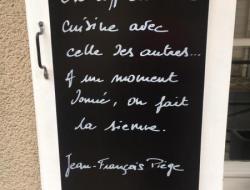 cuisine avec
celle des autres...
A un moment
donné, on fait
la sienne.
Jean-François Piège